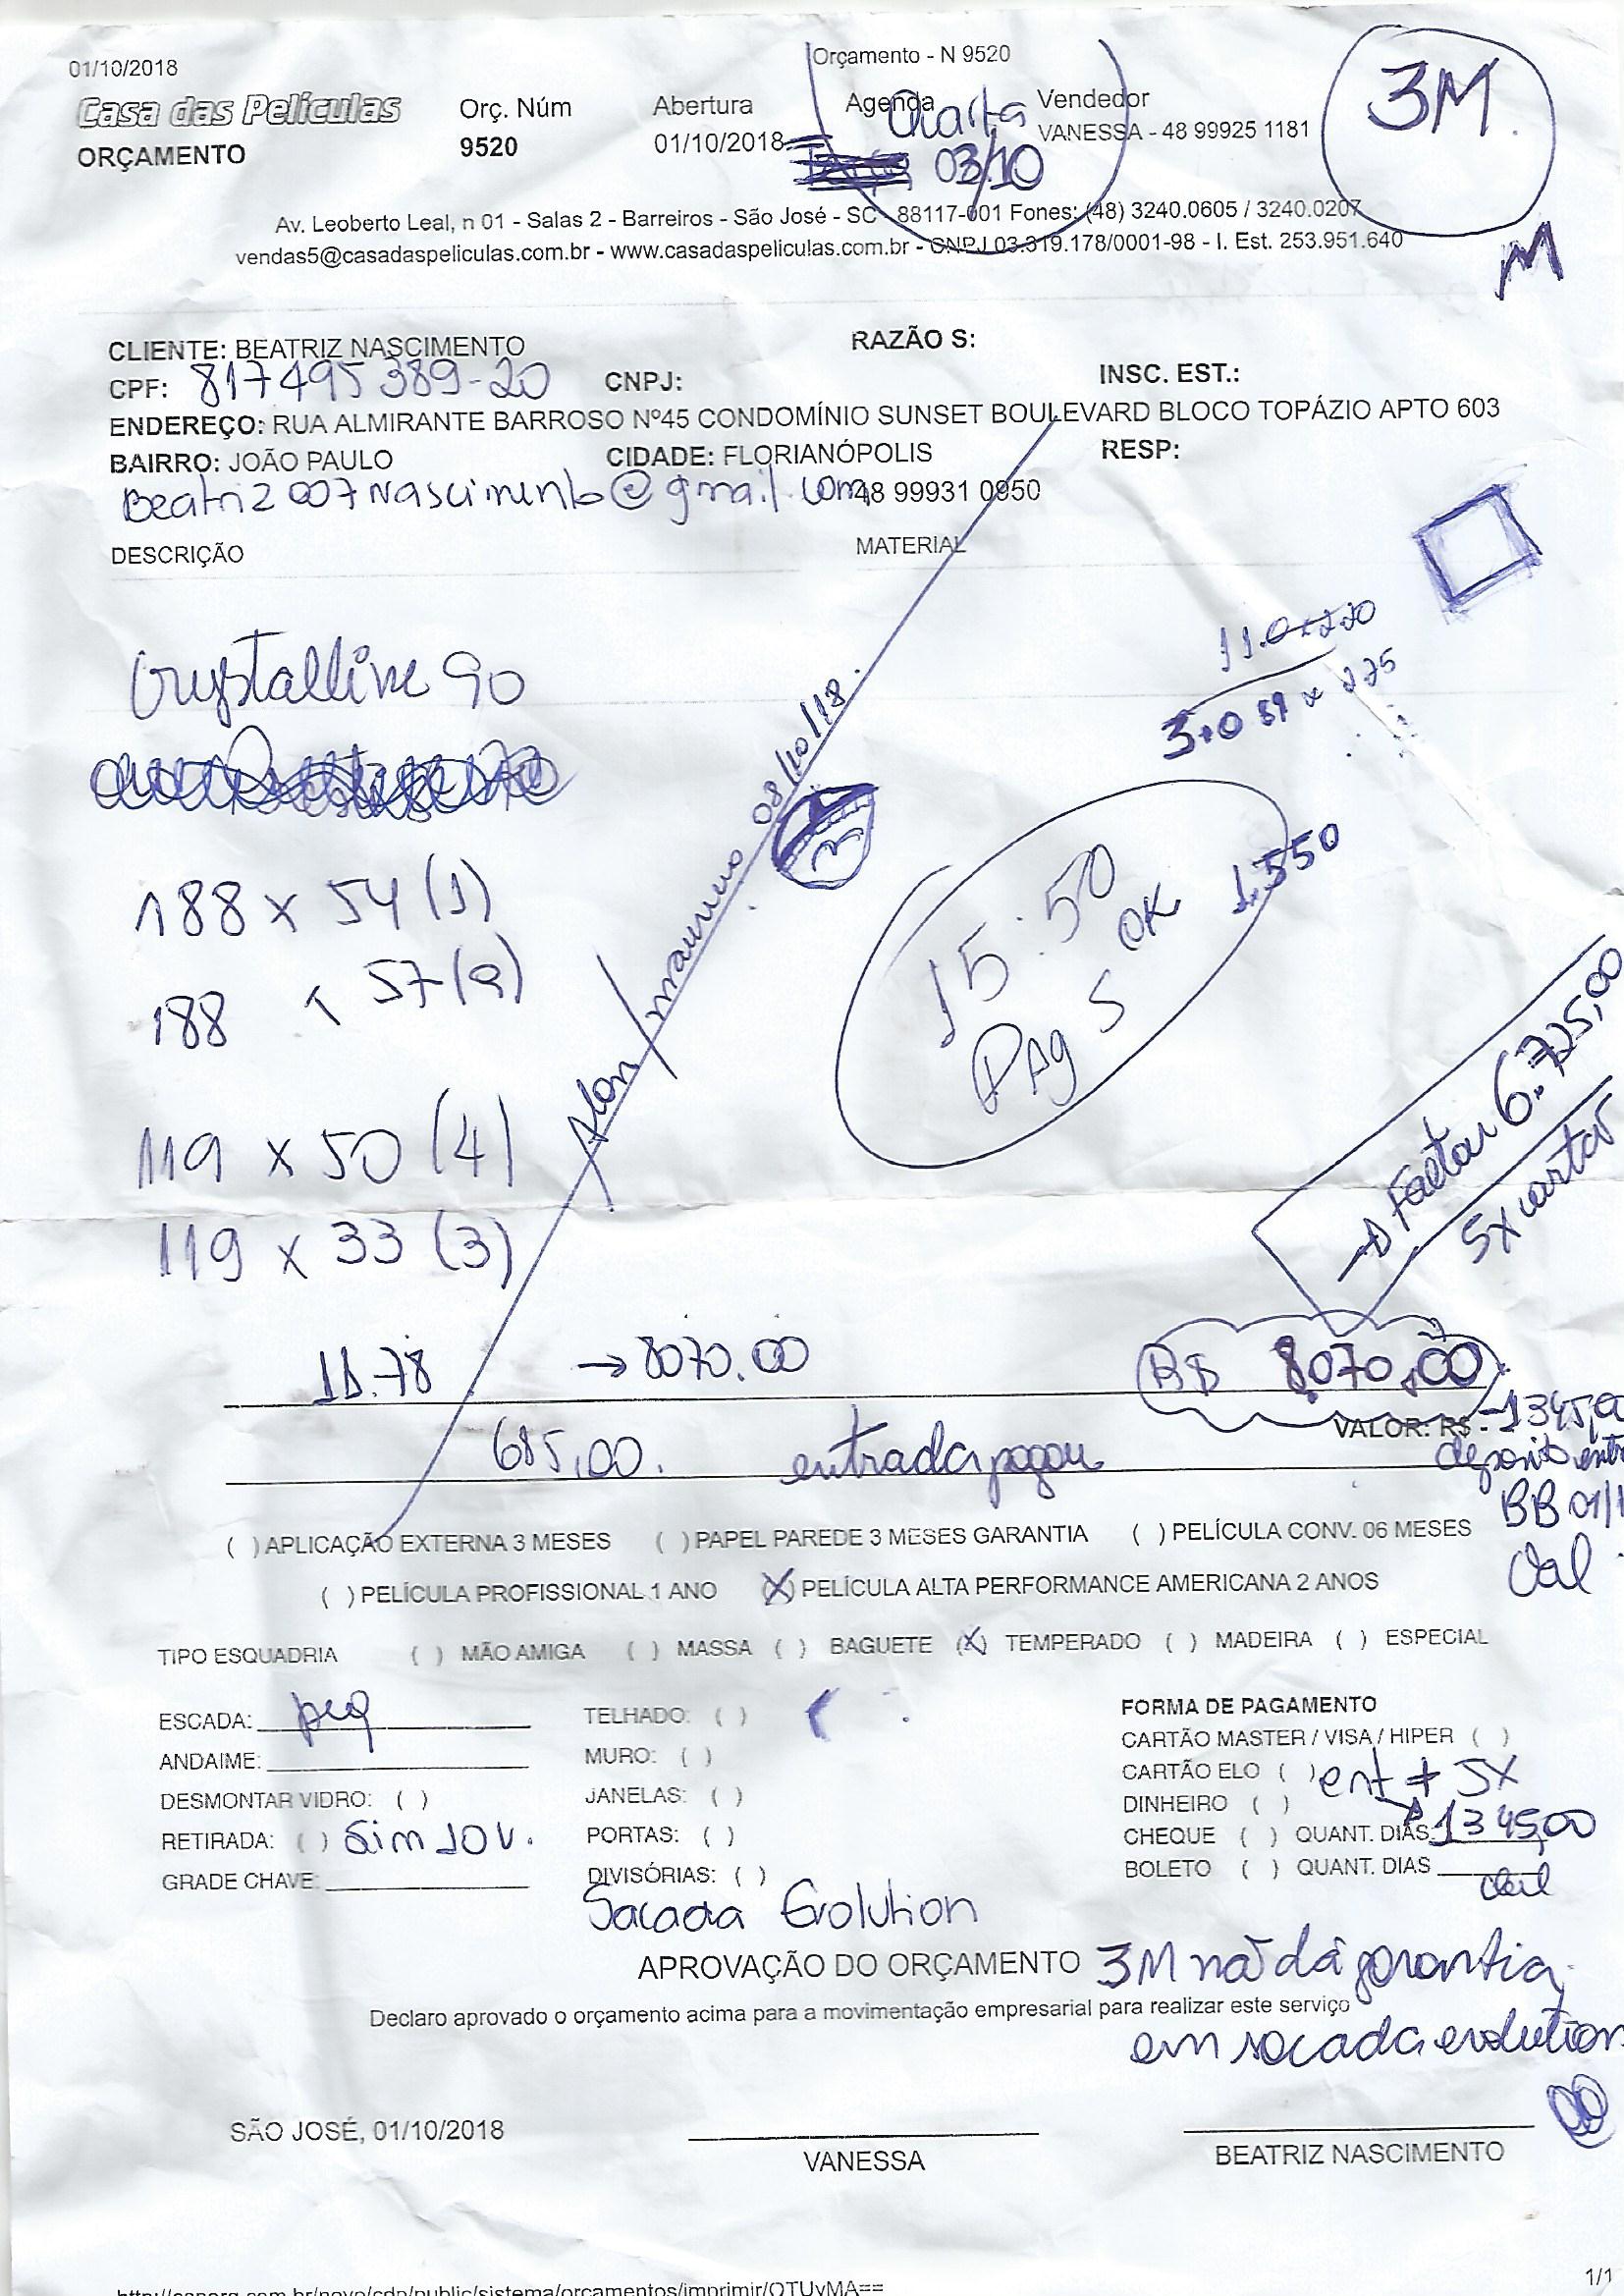 01/10/2018
Orçamento - N 9520
3M.
Casa das Películas
Orç. Núm
Abertura
Agenda
Quarta
Vendedor
ORÇAMENTO
9520
01/10/2018
03/10
VANESSA - 48 99925 1181
Av. Leoberto Leal, n 01 - Salas 2 - Barreiros - São José - SC - 88117-001 Fones: (48) 3240.0605 / 3240.0207
vendas5@casadaspeliculas.com.br - www.casadaspeliculas.com.br - CNPJ 03.319.178/0001-98 - I. Est. 253.951.640
M
CLIENTE: BEATRIZ NASCIMENTO
RAZÃO S:
CPF: 817495389-20
CNPJ:
INSC. EST.:
ENDEREÇO: RUA ALMIRANTE BARROSO Nº45 CONDOMÍNIO SUNSET BOULEVARD BLOCO TOPÁZIO APTO 603
BAIRRO: JOÃO PAULO
CIDADE: FLORIANÓPOLIS
RESP:
Beatriz007nascimento@gmail.com
48 99931 0950
DESCRIÇÃO
MATERIAL
Crystalline 90
188 x 54 (1)
188 x 57 (9)
119 x 50 (4)
119 x 33 (3)
08/10/18
15:50
OK
1.550
Pag 5
6.725,00
5x cartão
11.78
→ 8070.00
R$ 8.070,00
VALOR: R$
- 1345,0
685,00.
entrada pagou
deposito entr
BB 01/1
Val
( ) APLICAÇÃO EXTERNA 3 MESES ( ) PAPEL PAREDE 3 MESES GARANTIA ( ) PELÍCULA CONV. 06 MESES
( ) PELÍCULA PROFISSIONAL 1 ANO (X) PELÍCULA ALTA PERFORMANCE AMERICANA 2 ANOS
TIPO ESQUADRIA ( ) MÃO AMIGA ( ) MASSA ( ) BAGUETE (X) TEMPERADO ( ) MADEIRA ( ) ESPECIAL
ESCADA: peq
ANDAIME:
DESMONTAR VIDRO: ( )
RETIRADA: ( ) Sim 10 v.
GRADE CHAVE:
TELHADO: ( )
MURO: ( )
JANELAS: ( )
PORTAS: ( )
DIVISÓRIAS: ( )
Sacada Evolution
FORMA DE PAGAMENTO
CARTÃO MASTER / VISA / HIPER ( )
CARTÃO ELO ( ) ent + 5X
DINHEIRO ( )
CHEQUE ( ) QUANT. DIAS 1345,00
BOLETO ( ) QUANT. DIAS
Val
APROVAÇÃO DO ORÇAMENTO
3M não dá garantia
Declaro aprovado o orçamento acima para a movimentação empresarial para realizar este serviço
em sacada evolution
SÃO JOSÉ, 01/10/2018
VANESSA
BEATRIZ NASCIMENTO
1/1